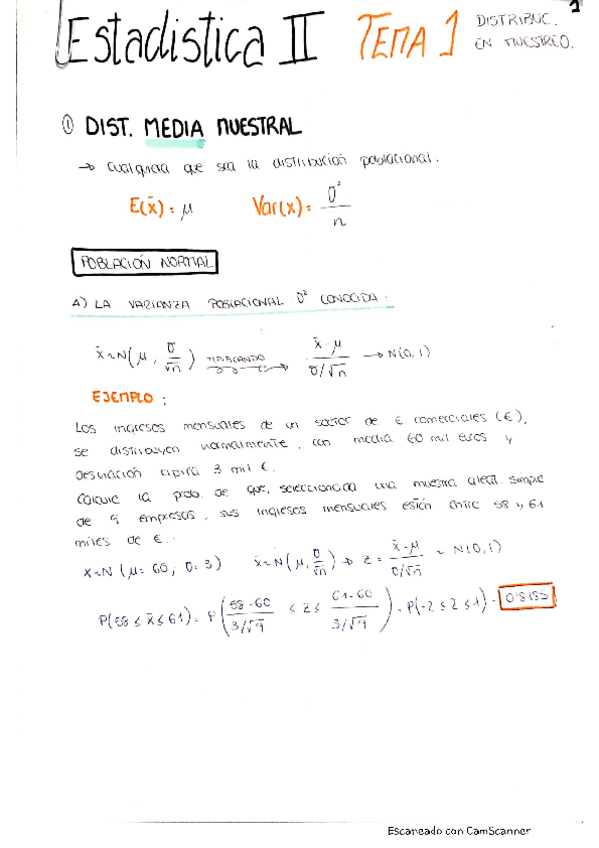 1
Estadistica II TEMA 1 DISTRIBUC.
EN MUESTREO.
① DIST. MEDIA MUESTRAL
→ Cualquiera que sea la distribución poblacional.
E(x̄) = μ Var(x) = σ² / n
POBLACIÓN NORMAL
A) LA VARIANZA POBLACIONAL σ² CONOCIDA:
x̄ ~ N(μ, σ/√n) TIPIFICANDO → (x̄ - μ) / (σ/√n) → N(0,1)
EJEMPLO:
Los ingresos mensuales de un sector de E comerciales (€),
se distribuyen normalmente, con media 60 mil euros y
desviación típica 3 mil €.
Calcule la prob. de que, seleccionada una muestra aleat. simple
de 9 empresas, sus ingresos mensuales estén entre 58 y 61
miles de €.
x ~ N(μ = 60; σ = 3) x̄ ~ N(μ, σ/√n) → Z = (x̄ - μ) / (σ/√n) ~ N(0,1)
P(58 ≤ x̄ ≤ 61) = P((58-60) / (3/√9) ≤ Z ≤ (61-60) / (3/√9)) = P(-2 ≤ Z ≤ 1) = 0'8185
Escaneado con CamScanner